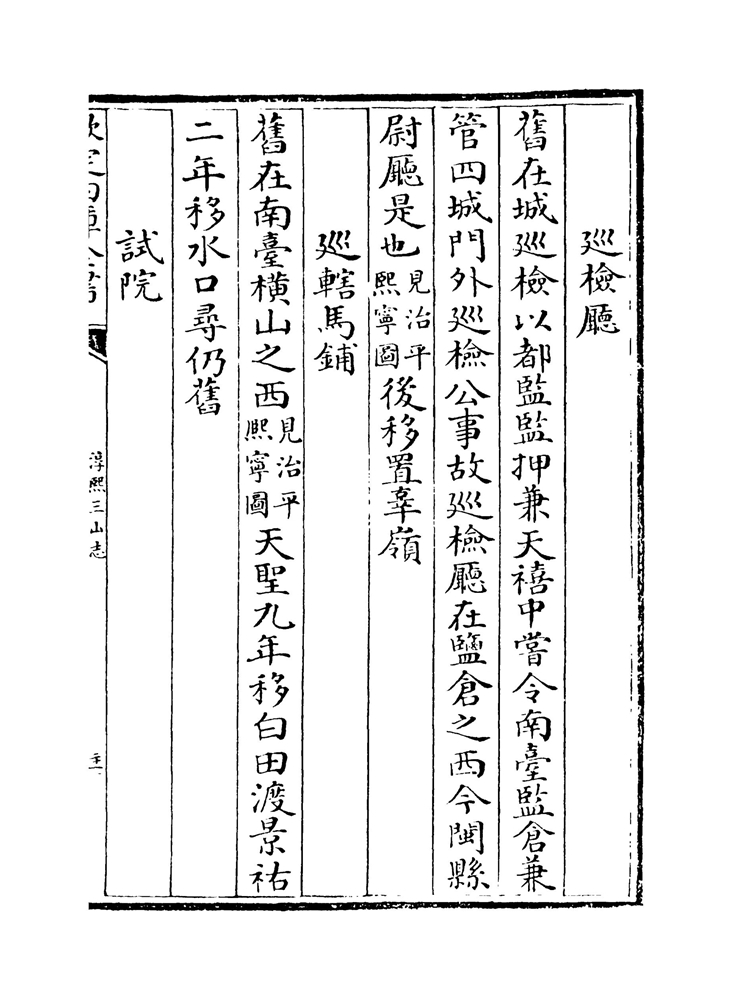 巡檢廳
舊在城巡檢以都監監押兼天禧中嘗令南臺監倉兼
管四城門外巡檢公事故巡檢廳在鹽倉之西今閩縣
尉廳是也見治平熙寧圖後移置辜嶺
巡轄馬鋪
舊在南臺横山之西見治平熙寧圖天聖九年移白田渡景祐
二年移水口尋仍舊
試院
欽定四庫全書
淳熙三山志